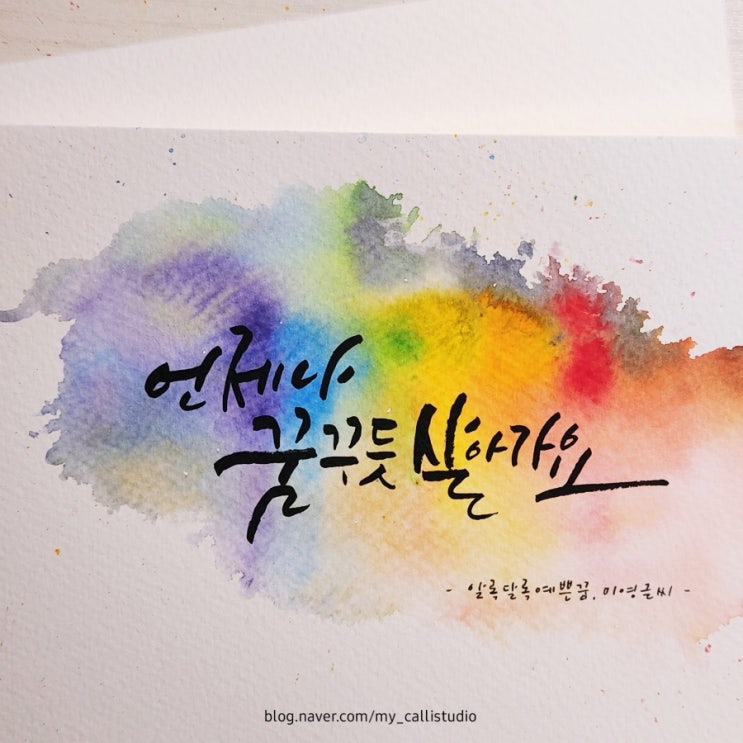 언제나
꿈꾸듯 살아가요
- 알록달록예쁜꿈, 미영글씨 -
blog.naver.com/my_callistudio